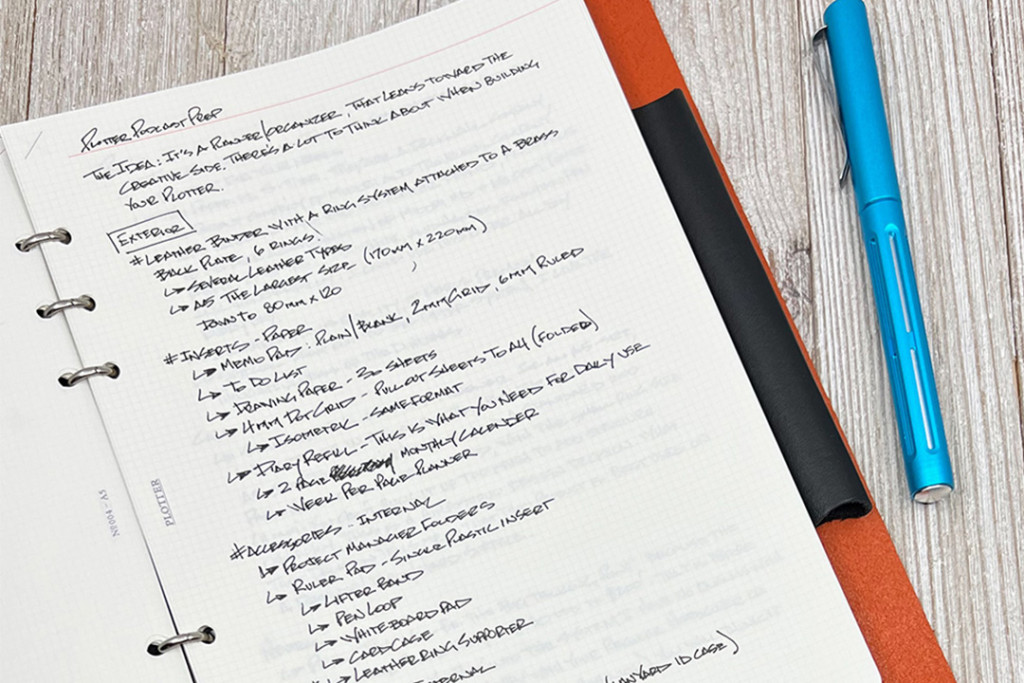 PLOTTER PODCAST PREP
THE IDEA: IT'S A PLANNER/ORGANIZER, THAT LEANS TOWARD THE
CREATIVE SIDE. THERE'S A LOT TO THINK ABOUT WHEN BUILDING
YOUR PLOTTER.
EXTERIOR
# LEATHER BINDER WITH A RING SYSTEM ATTACHED TO A BRASS
BACK PLATE, 6 RINGS.
↳ SEVERAL LEATHER TYPES
↳ A5 THE LARGEST SIZE (170MM X 220MM)
DOWN TO 80MM X 120
# INSERTS - PAPER
↳ MEMO PAD: PLAIN/BLANK, 2MM GRID, 6MM RULED
↳ TO DO LIST
↳ DRAWING PAPER - 30 SHEETS
↳ 4MM DOT GRID - PULL OUT SHEETS TO A4 (FOLDED)
↳ ISOMETRIC - SAME FORMAT
↳ DIARY REFILL - THIS IS WHAT YOU NEED FOR DAILY USE
↳ 2 PAGE MONTHLY CALENDER
↳ WEEK PER PAGE PLANNER
# ACCESSORIES - INTERNAL
↳ PROJECT MANAGER FOLDERS
↳ RULER PAD - SINGLE PLASTIC INSERT
↳ LIFTER BAND
↳ PEN LOOP
↳ WHITEBOARD PAD
↳ CARD CASE
↳ LEATHER RING SUPPORTER
ID CASE)
PLOTTER